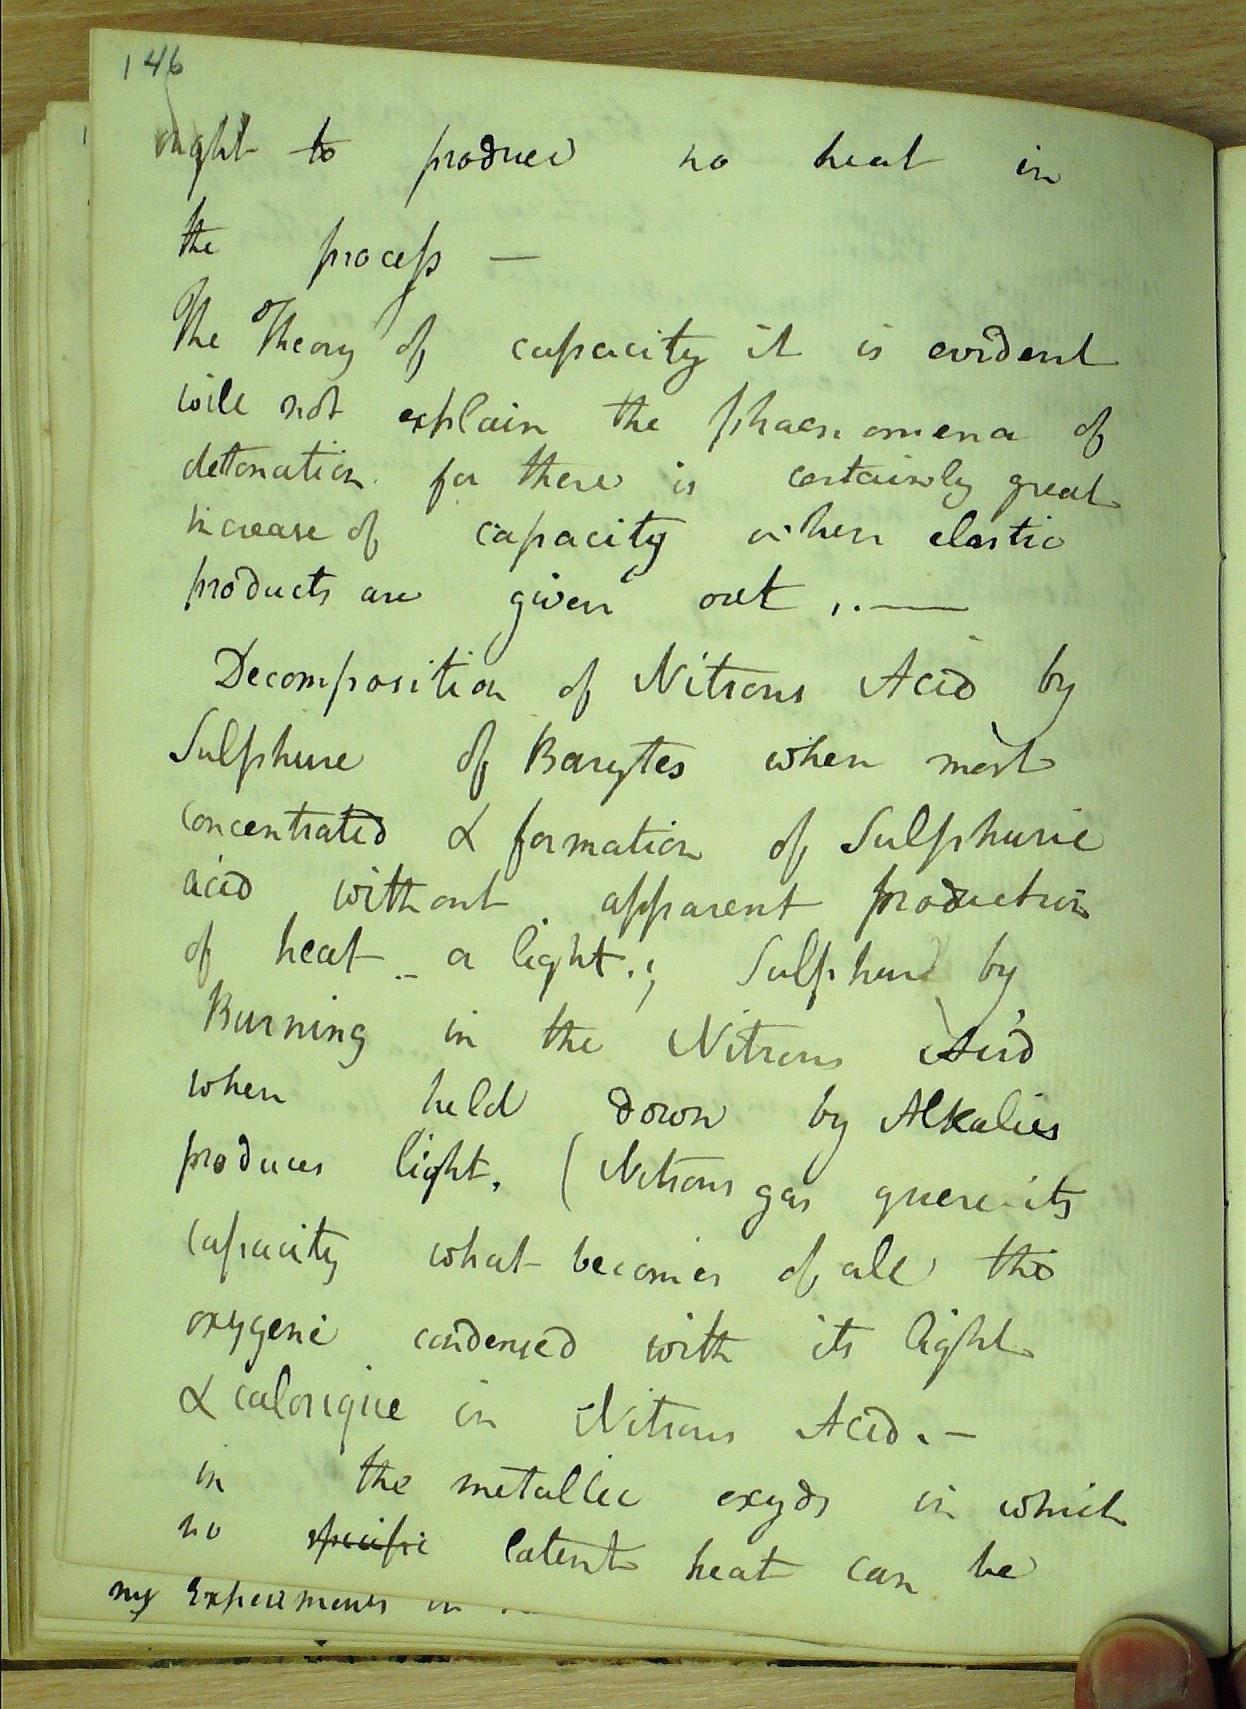 146
ought to produce no heat in
the process —
The Theory of capacity it is evident
will not explain the phaenomena of
detonation for there is certainly great
increase of capacity when elastic
products are given out ,. —
Decomposition of Nitrous Acid by
Sulphure of Barytes when most
concentrated & formation of Sulphuric
acid without apparent production
of heat - or light. ; Sulphure by
Burning in the Nitrous Acid
when held down by Alkalies
produces light. ( Nitrous gas quere its
capacity what becomes of all the
oxygene condensed with its light
& calorique in Nitrous Acid. —
in the metallic oxyds in which
no specific latent heat can be
my Experiments in